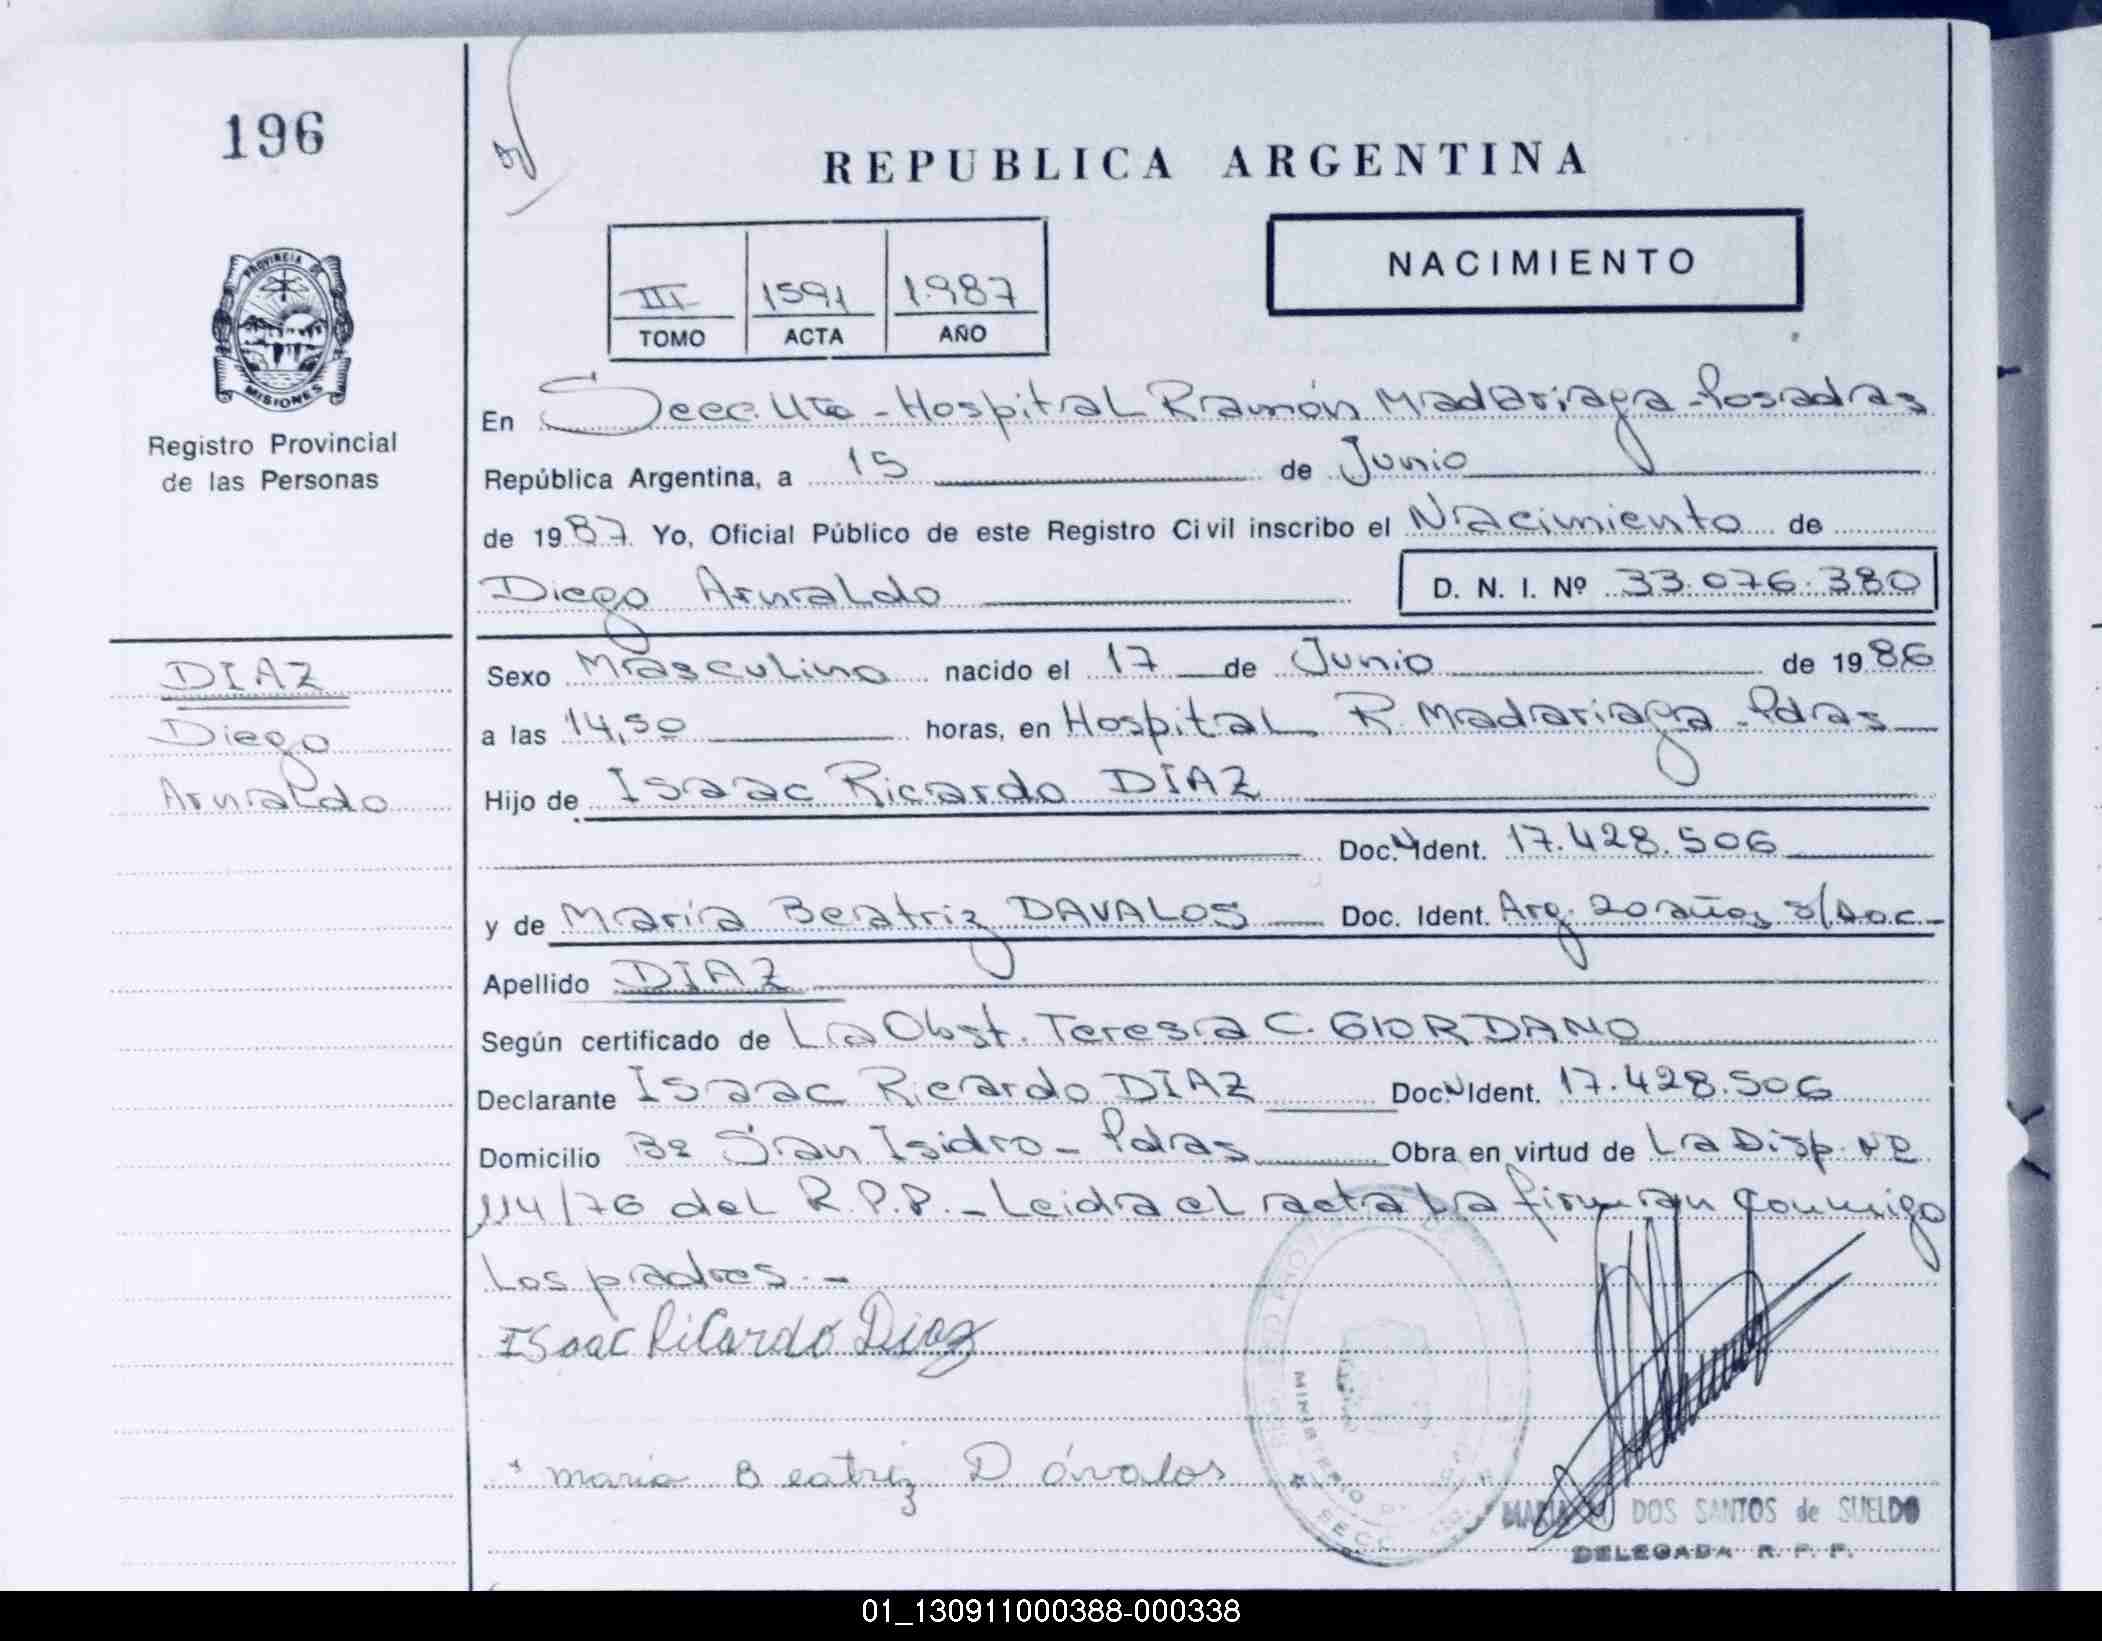 196
REPUBLICA ARGENTINA
NACIMIENTO
III 1591 1987
TOMO ACTA AÑO
PROVINCIA DE
MISIONES
Registro Provincial
de las Personas
En Secc. Uta - Hospital Ramón Madariaga - Posadas
República Argentina, a 15 de Junio
de 1987 Yo, Oficial Público de este Registro Civil inscribo el Nacimiento de
Diego Arnaldo D. N. I. Nº 33.076.380
DIAZ
Diego
Arnaldo
Sexo Masculino nacido el 17 de Junio de 1986
a las 14,50 horas, en Hospital R. Madariaga - Pdas
Hijo de Isaac Ricardo DIAZ
Doc. N Ident. 17.428.506
y de María Beatriz DAVALOS Doc. Ident. Arg. 20 años s/doc -
Apellido DIAZ
Según certificado de La Obst. Teresa C. GIORDANO
Declarante Isaac Ricardo DIAZ Doc. N Ident. 17.428.506
Domicilio Bº San Isidro - Pdas Obra en virtud de La Disp. Nº
114/76 del R.P.P. - Leida el acta la firman conmigo
Los padres. -
ISaac RiCardo Diaz
maria Beatriz Dávalos
MINISTERIO
SECC
MARIA DOS SANTOS de SUELDO
DELEGADA R. P. P.
01_130911000388-000338